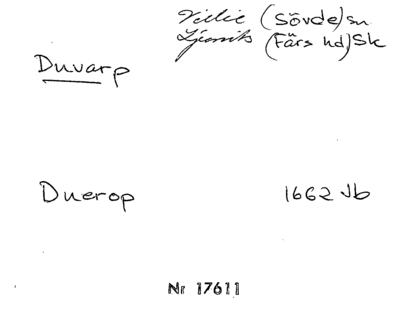 (Sövde)sn
Ljunits (Färs hd)Sk
Duvarp
Duerop 1662 Jb
Nr 17611